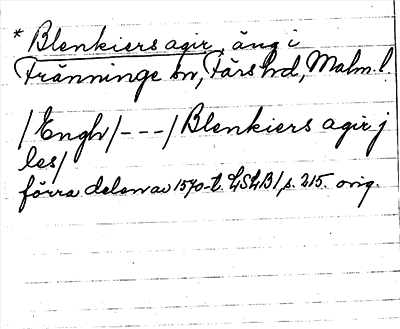 * Blenkiers agir, äng i
Fränninge sn, Färs hd, Malm. l.
/Engh/---/Blenkiers agir j
les/
förra delen av 1570-t. LSLB1, s. 215. orig.